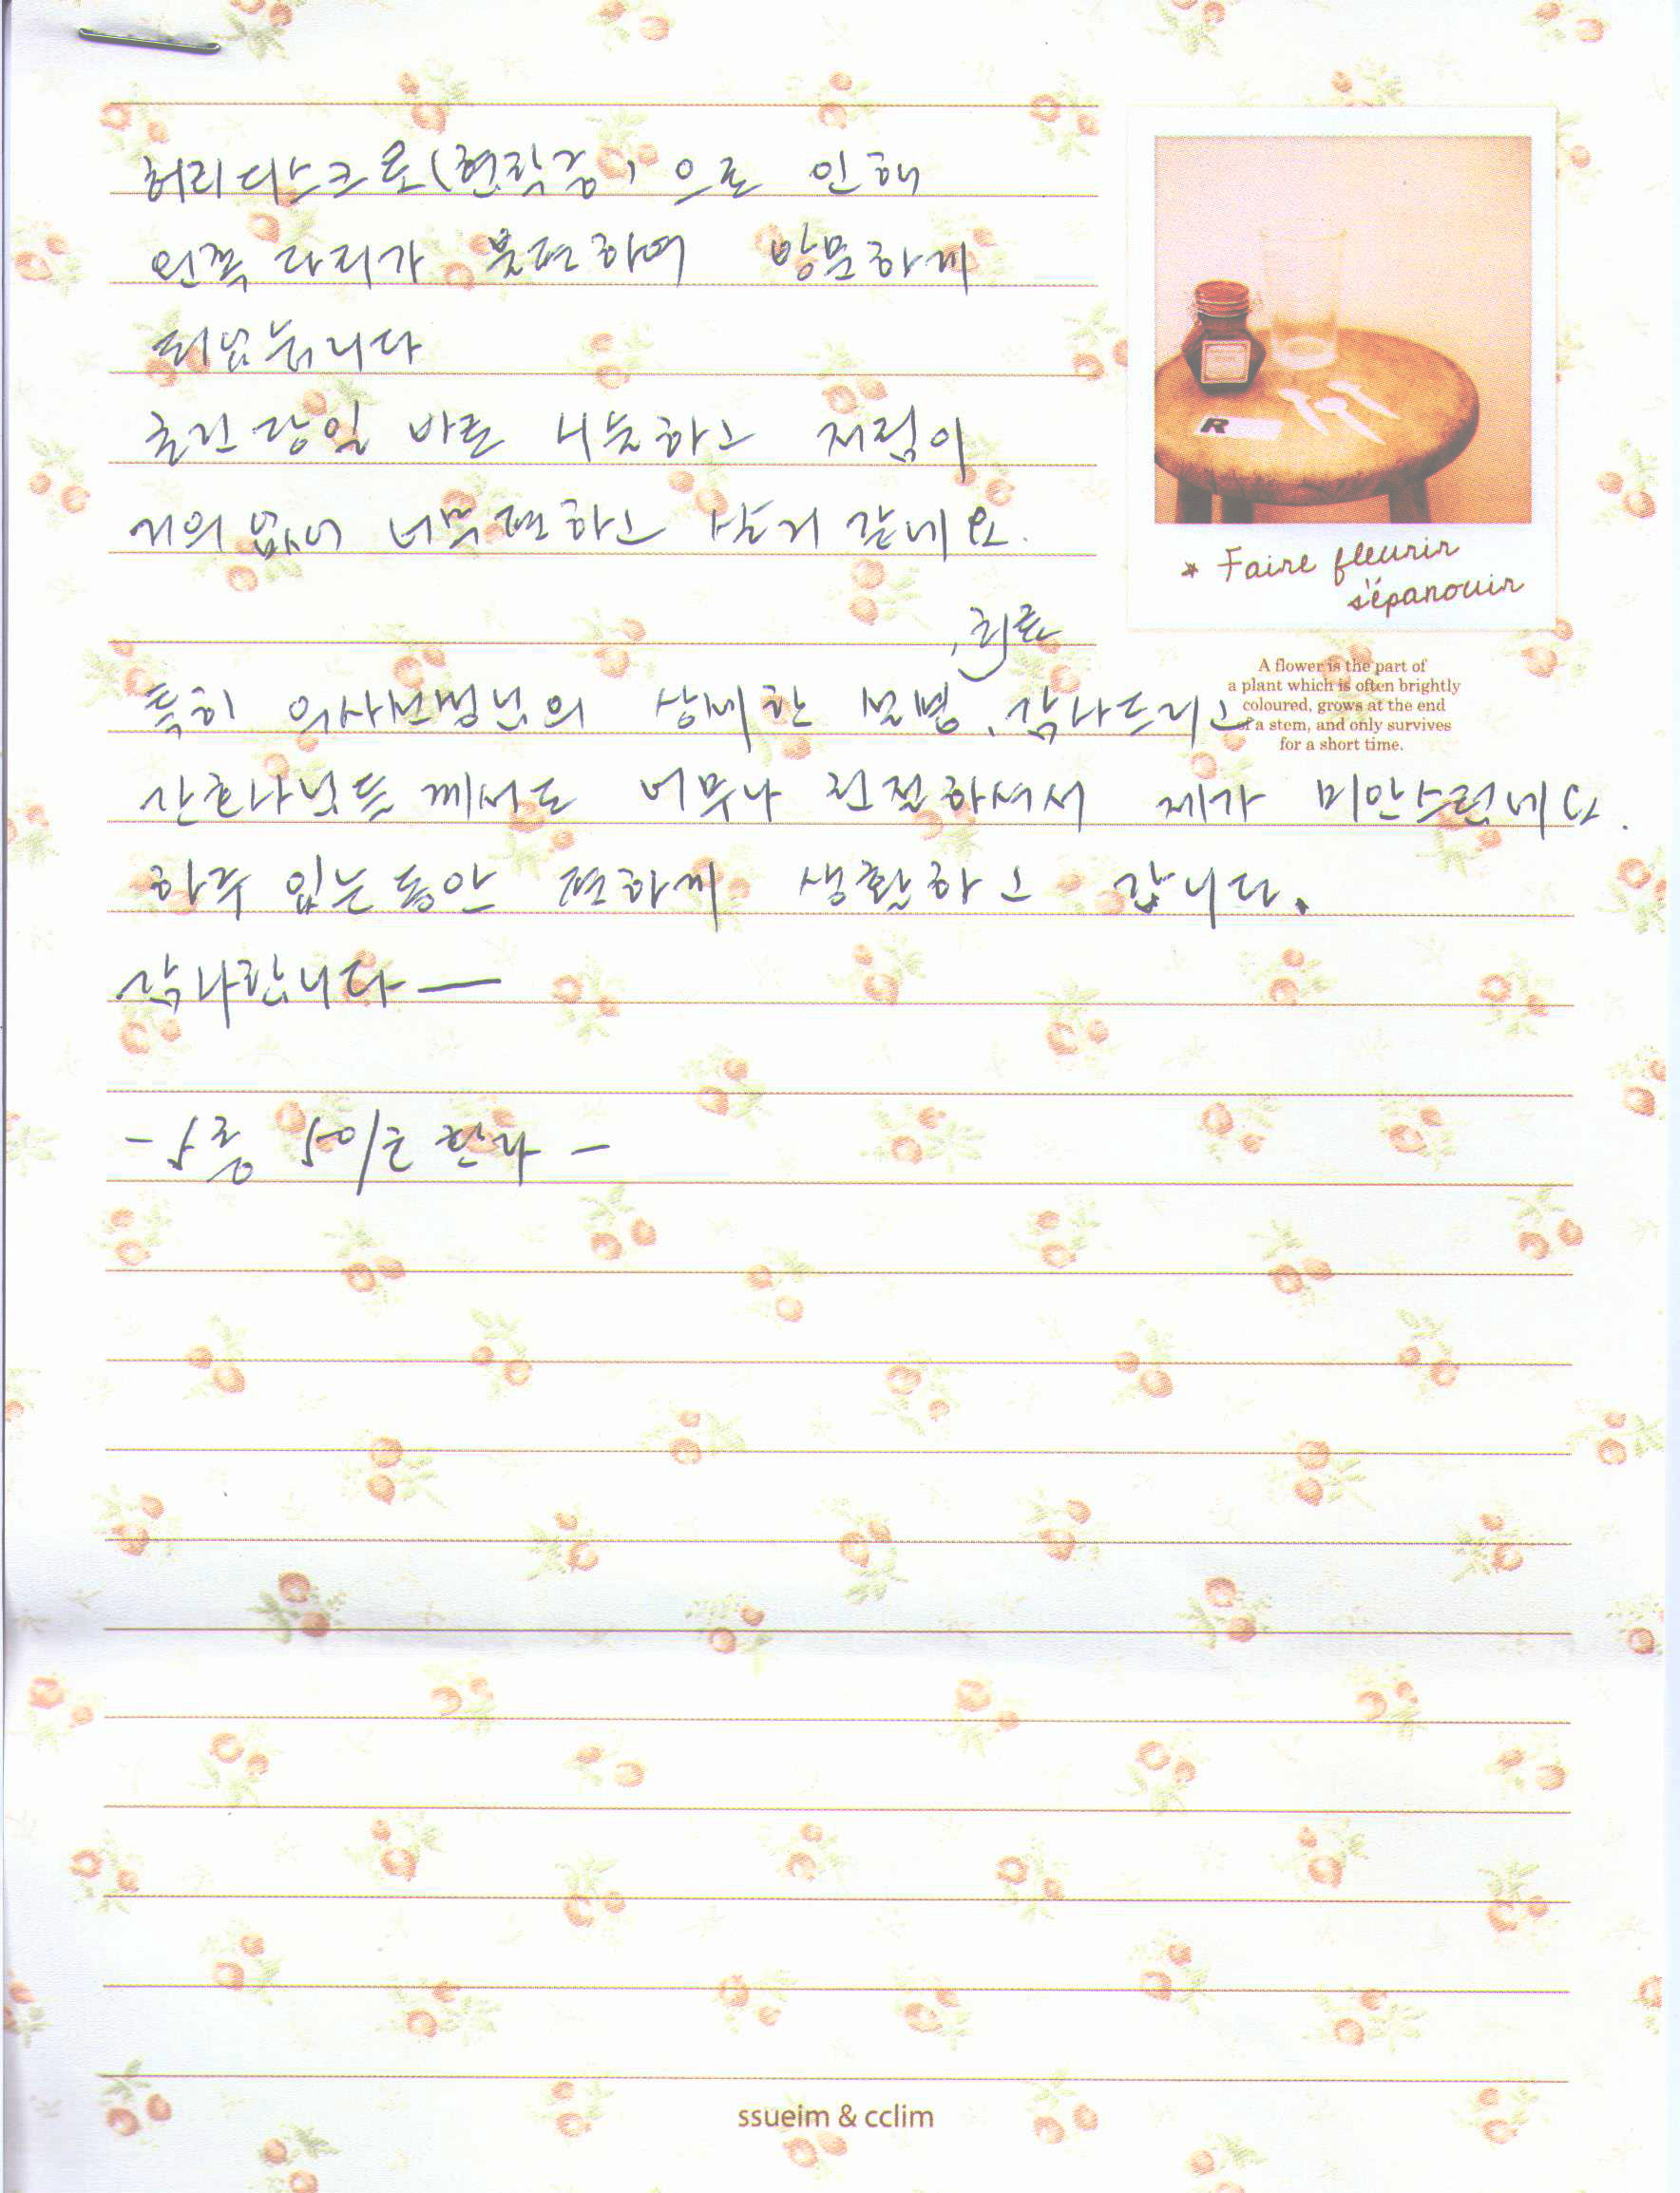 허리디스크로(협착증)으로 인해
왼쪽 다리가 불편하여 방문하게
되었습니다
당일 바로 시술하고 통점이
거의 없어 너무 편하고 살거 같네요.
, 치료
특히 의사선생님의 상세한 설명, 감사드리고
간호사님들 께서도 너무나 친절하셔서 제가 미안스럽네요.
하루 입는 동안 편하게 생활하고 갑니다.
감사합니다—
- 5층 501호 환자 -
* Faire fleurir
s'épanouir
A flower is the part of
a plant which is often brightly
coloured, grows at the end
of a stem, and only survives
for a short time.
R
ssueim & cclim